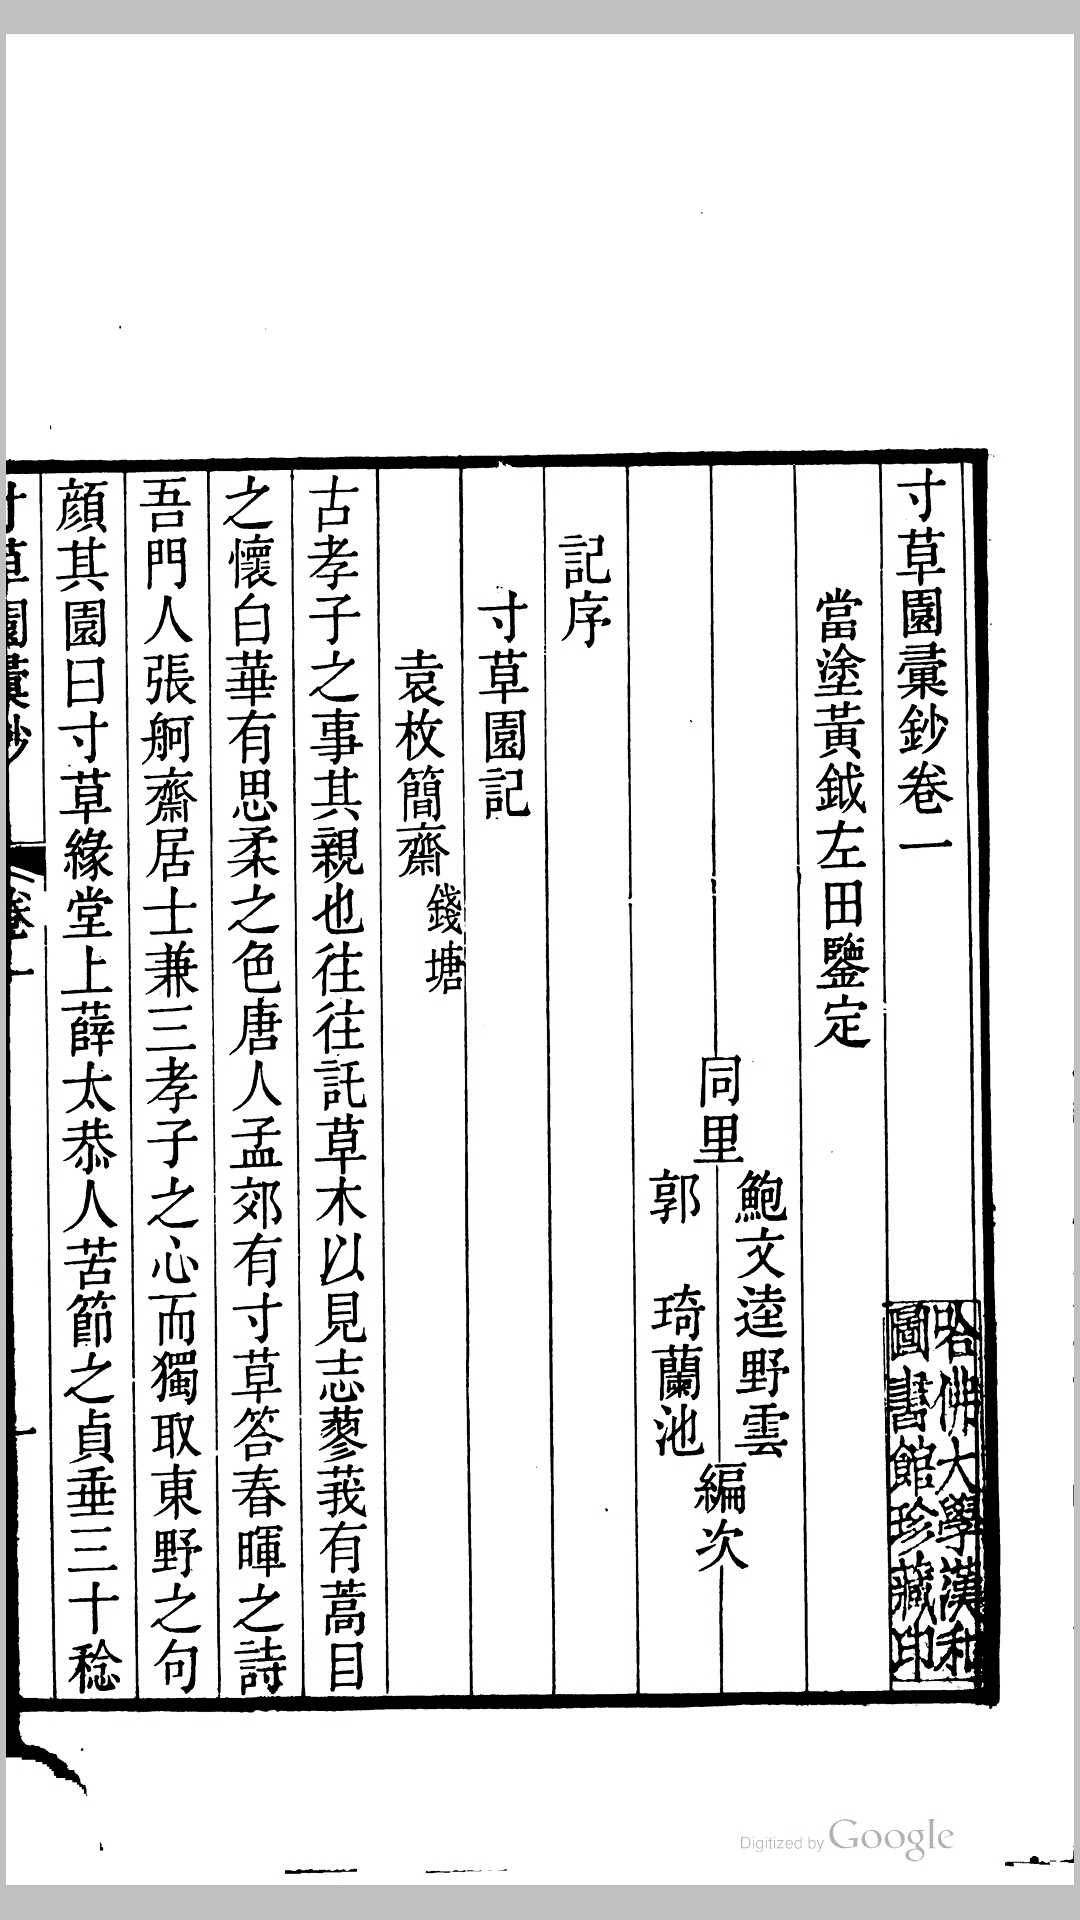 寸草園彙鈔卷一
哈佛大學漢和
圖書館珍藏印
當塗黃鉞左田鑒定
同里
鮑文逵野雲
郭　琦蘭池
編次
記序
寸草園記
袁枚簡齋錢塘
古孝子之事其親也往往託草木以見志蓼莪有蒿目
之懷白華有思柔之色唐人孟郊有寸草答春暉之詩
吾門人張舸齋居士兼三孝子之心而獨取東野之句
顏其園曰寸草緣堂上薛太恭人苦節之貞垂三十稔
寸草園彙鈔
卷一
一
Digitized by Google